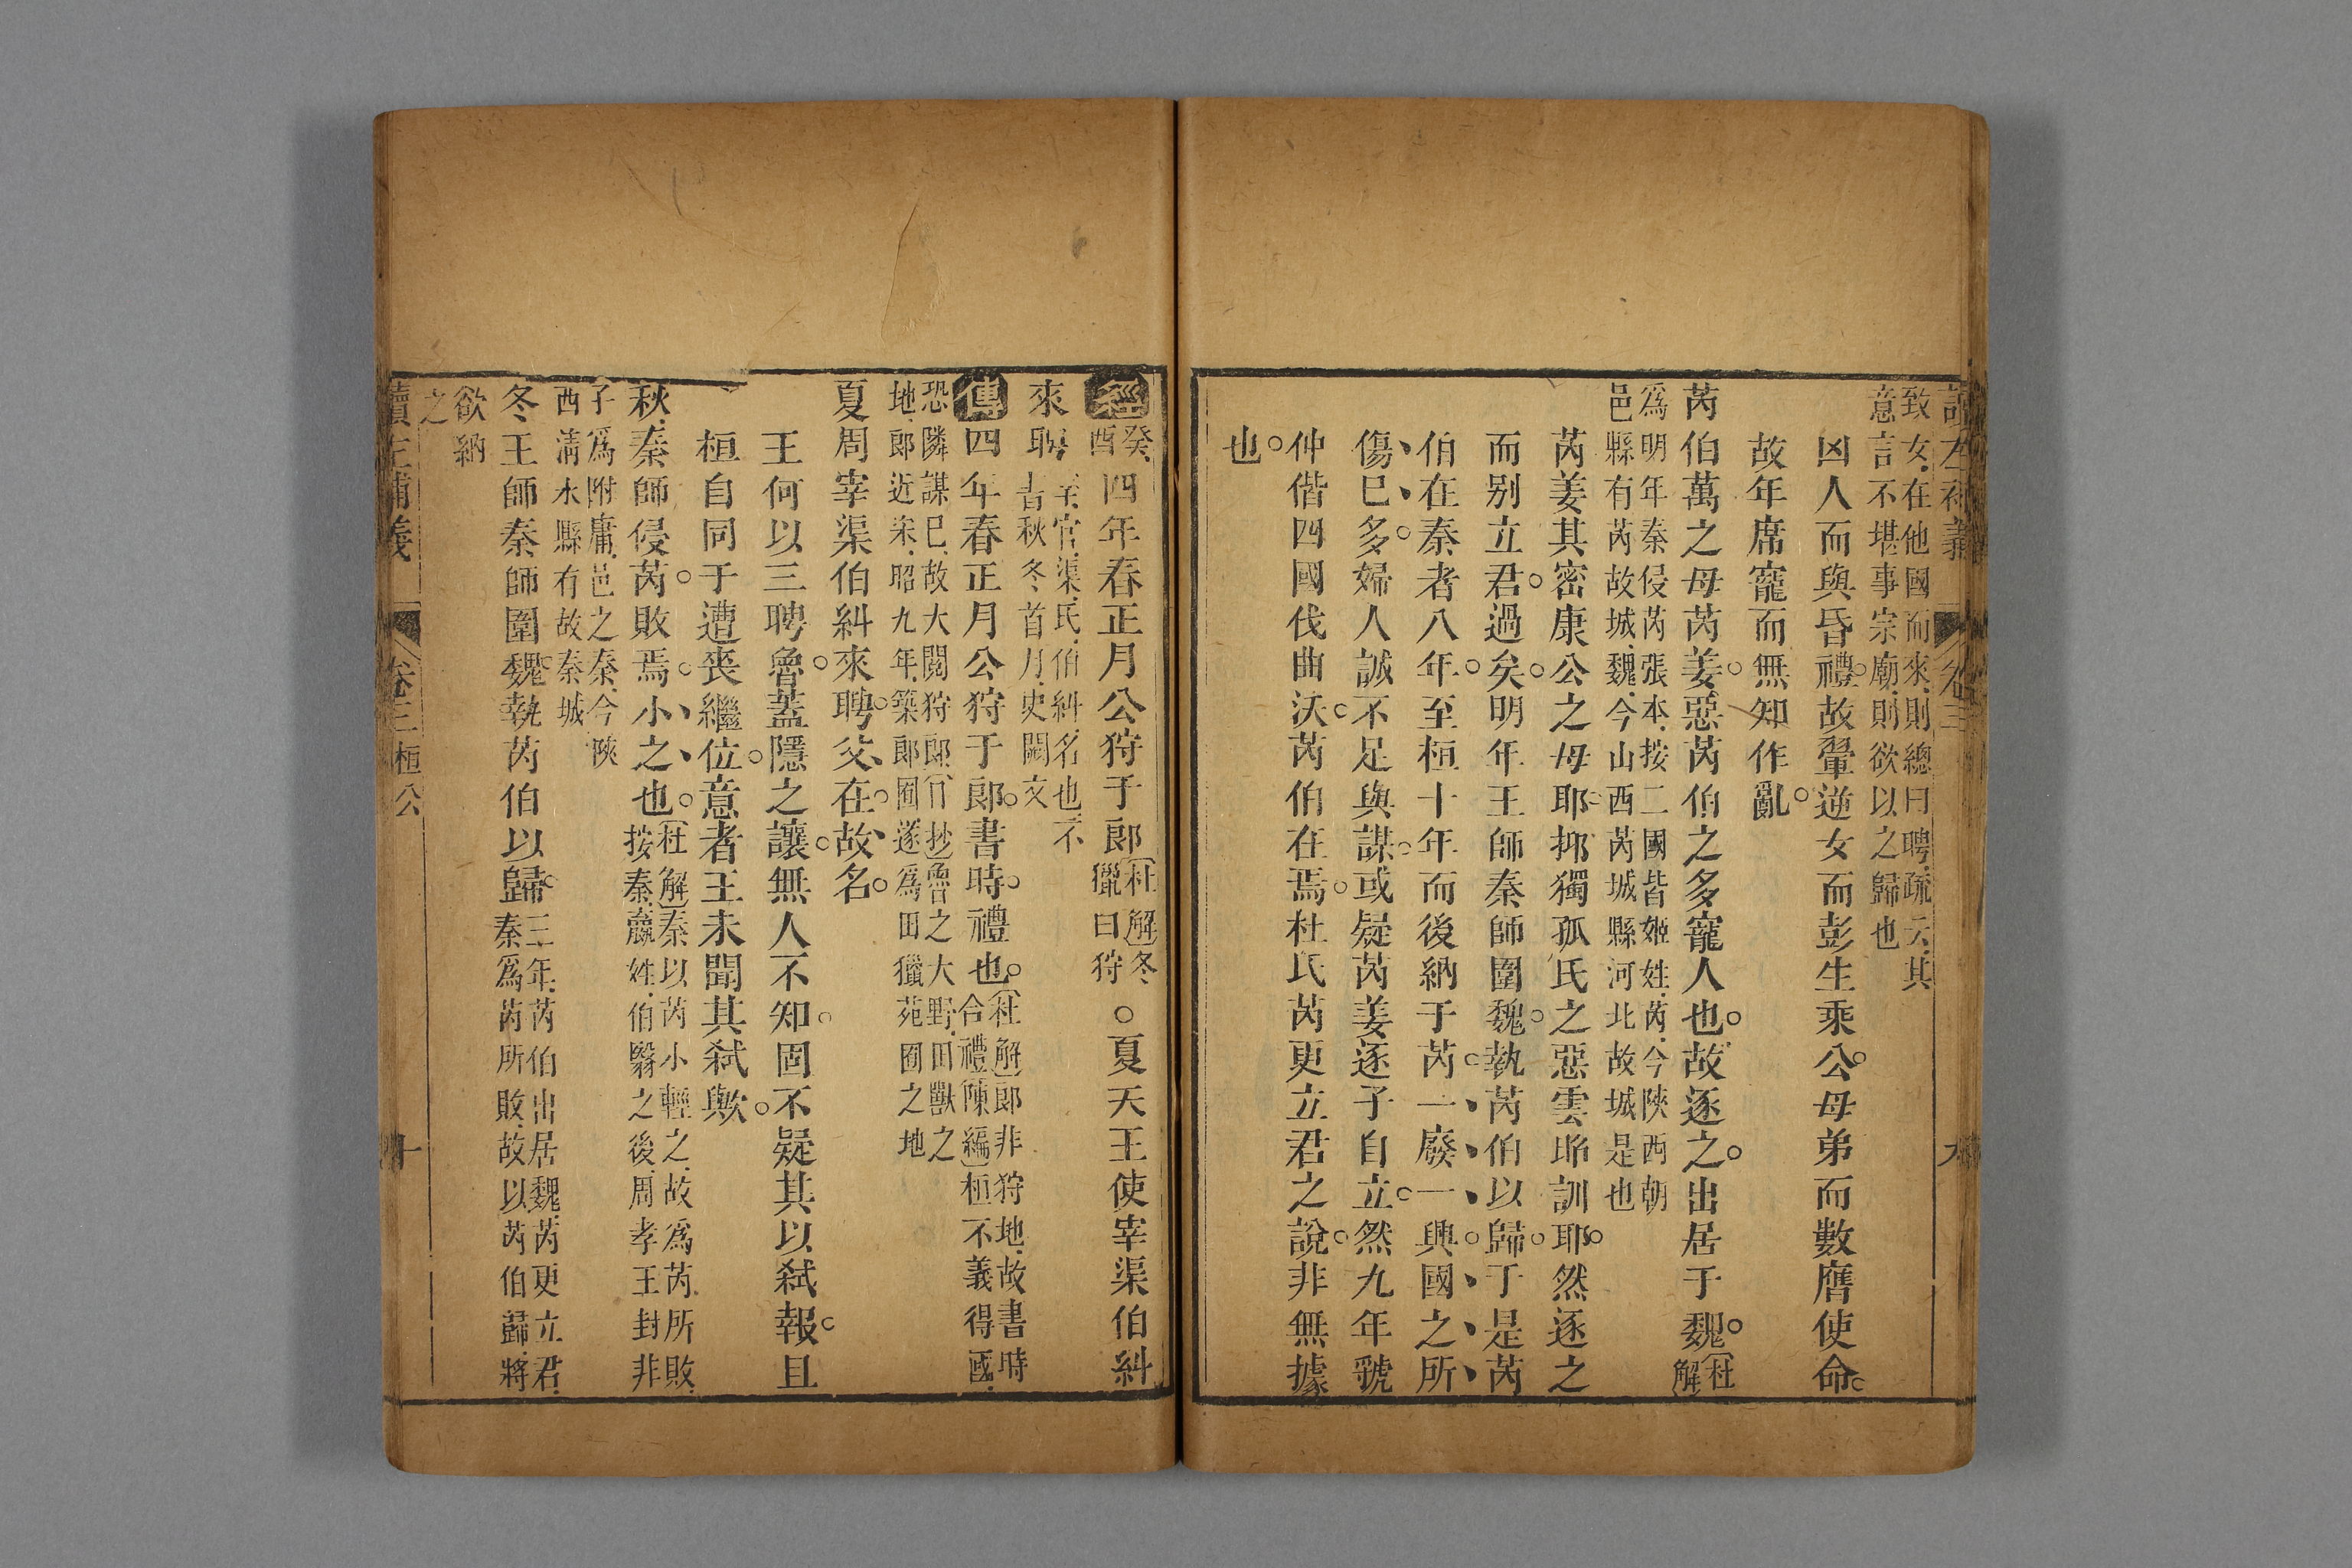 致女在他國而來則總曰聘疏云其
意言不堪事宗廟則欲以之歸也
凶人而與昏禮故翬逆女而彭生乘公母弟而數膺使命
故年席寵而無知作亂
芮伯萬之母芮姜惡芮伯之多寵人也故逐之出居于魏杜解
爲明年秦侵芮張本按二國皆姬姓芮今陝西朝
邑縣有芮故城魏今山西芮城縣河北故城是也
芮姜其密康公之母耶抑獨孤氏之惡雲昭訓耶然逐之
而別立君過矣明年王師秦師圍魏執芮伯以歸于是芮
伯在秦者八年至桓十年而後納于芮一廢一興國之所
傷巳多婦人誠不足與謀或疑芮姜逐子自立然九年虢
仲偕四國伐曲沃芮伯在焉杜氏芮更立君之說非無據
也
九
經癸酉四年春正月公狩于郎杜解冬獵曰狩○夏天王使宰渠伯糾
來聘宰官渠氏伯糾名也不書秋冬首月史闕文
傳四年春正月公狩于郎書時禮也杜解郎非狩地故書時合禮陳編桓不義得國
恐隣謀巳故大閱狩郎日抄魯之大野田獸之
地郎近宋昭九年築郎囿遂爲田獵苑囿之地
夏周宰渠伯糾來聘父在故名
王何以三聘魯蓋隱之讓無人不知固不疑其以弒報且
桓自同于遭喪繼位意者王未聞其弒歟
秋秦師侵芮敗焉小之也杜解秦以芮小輕之故爲芮所敗按秦嬴姓伯翳之後周孝王封非
子爲附庸邑之秦今陝
西清水縣有故秦城
冬王師秦師圍魏執芮伯以歸三年芮伯出居魏芮更立君秦爲芮所敗故以芮伯歸將
欲納
之
讀左補義 卷三 桓公 十